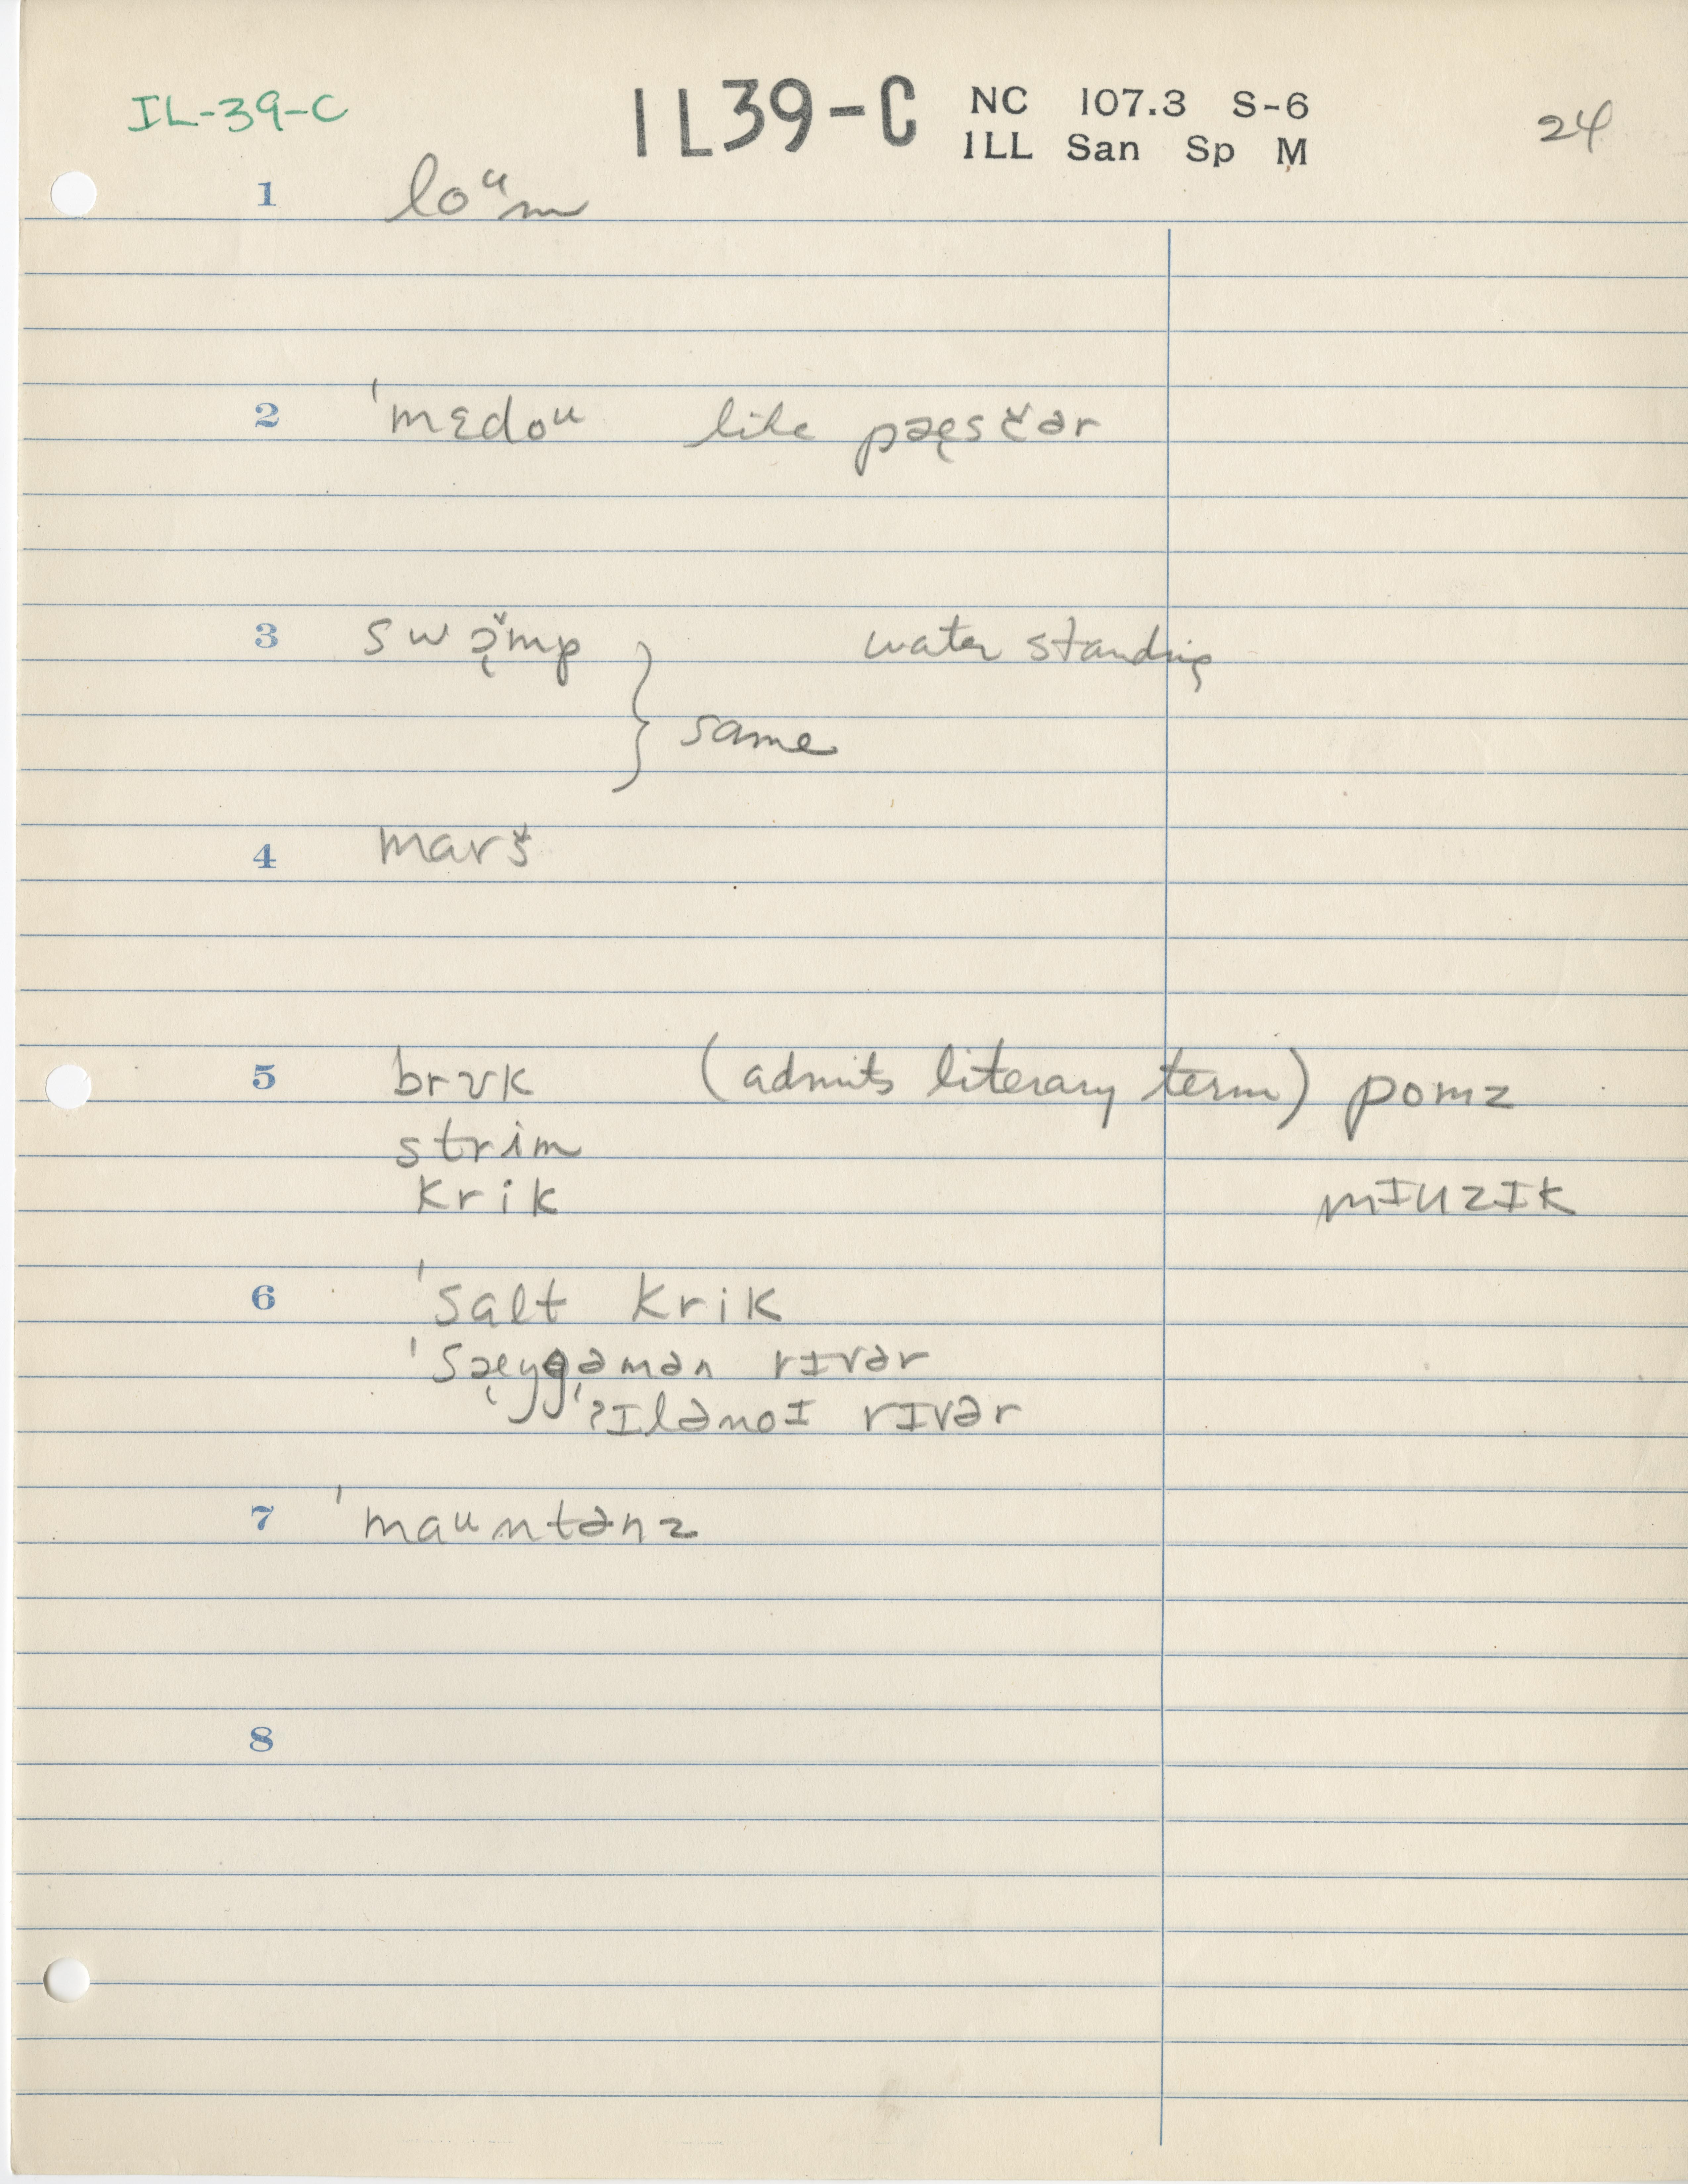 IL-39-C
IL39-C
NC 107.3 S-6
ILL San Sp M
24
1 loᵘm
2 ˈmɛdoᵘ like pæ̨sčər
3 swɔ̨̌mp water standing
} same
4 marš
5 brʊk (admits literary term) pomz
strim
krik mɪuzɪk
6 ˈsalt krik
ˈsæ̨ŋgəmən rɪvər
ˈʔɪlənoɪ rɪvər
7 ˈmaᵘntənz
8